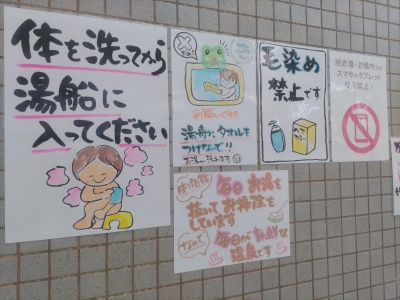 体を洗ってから
湯船に
入ってください
湯船にタオルを
つけないで!!
毛染め
禁止です
脱衣場・浴場内での
スマホやタブレット
使用禁止!
毎日お湯を
抜いてお掃除を
しています
なので
毎日が新鮮な
温泉です